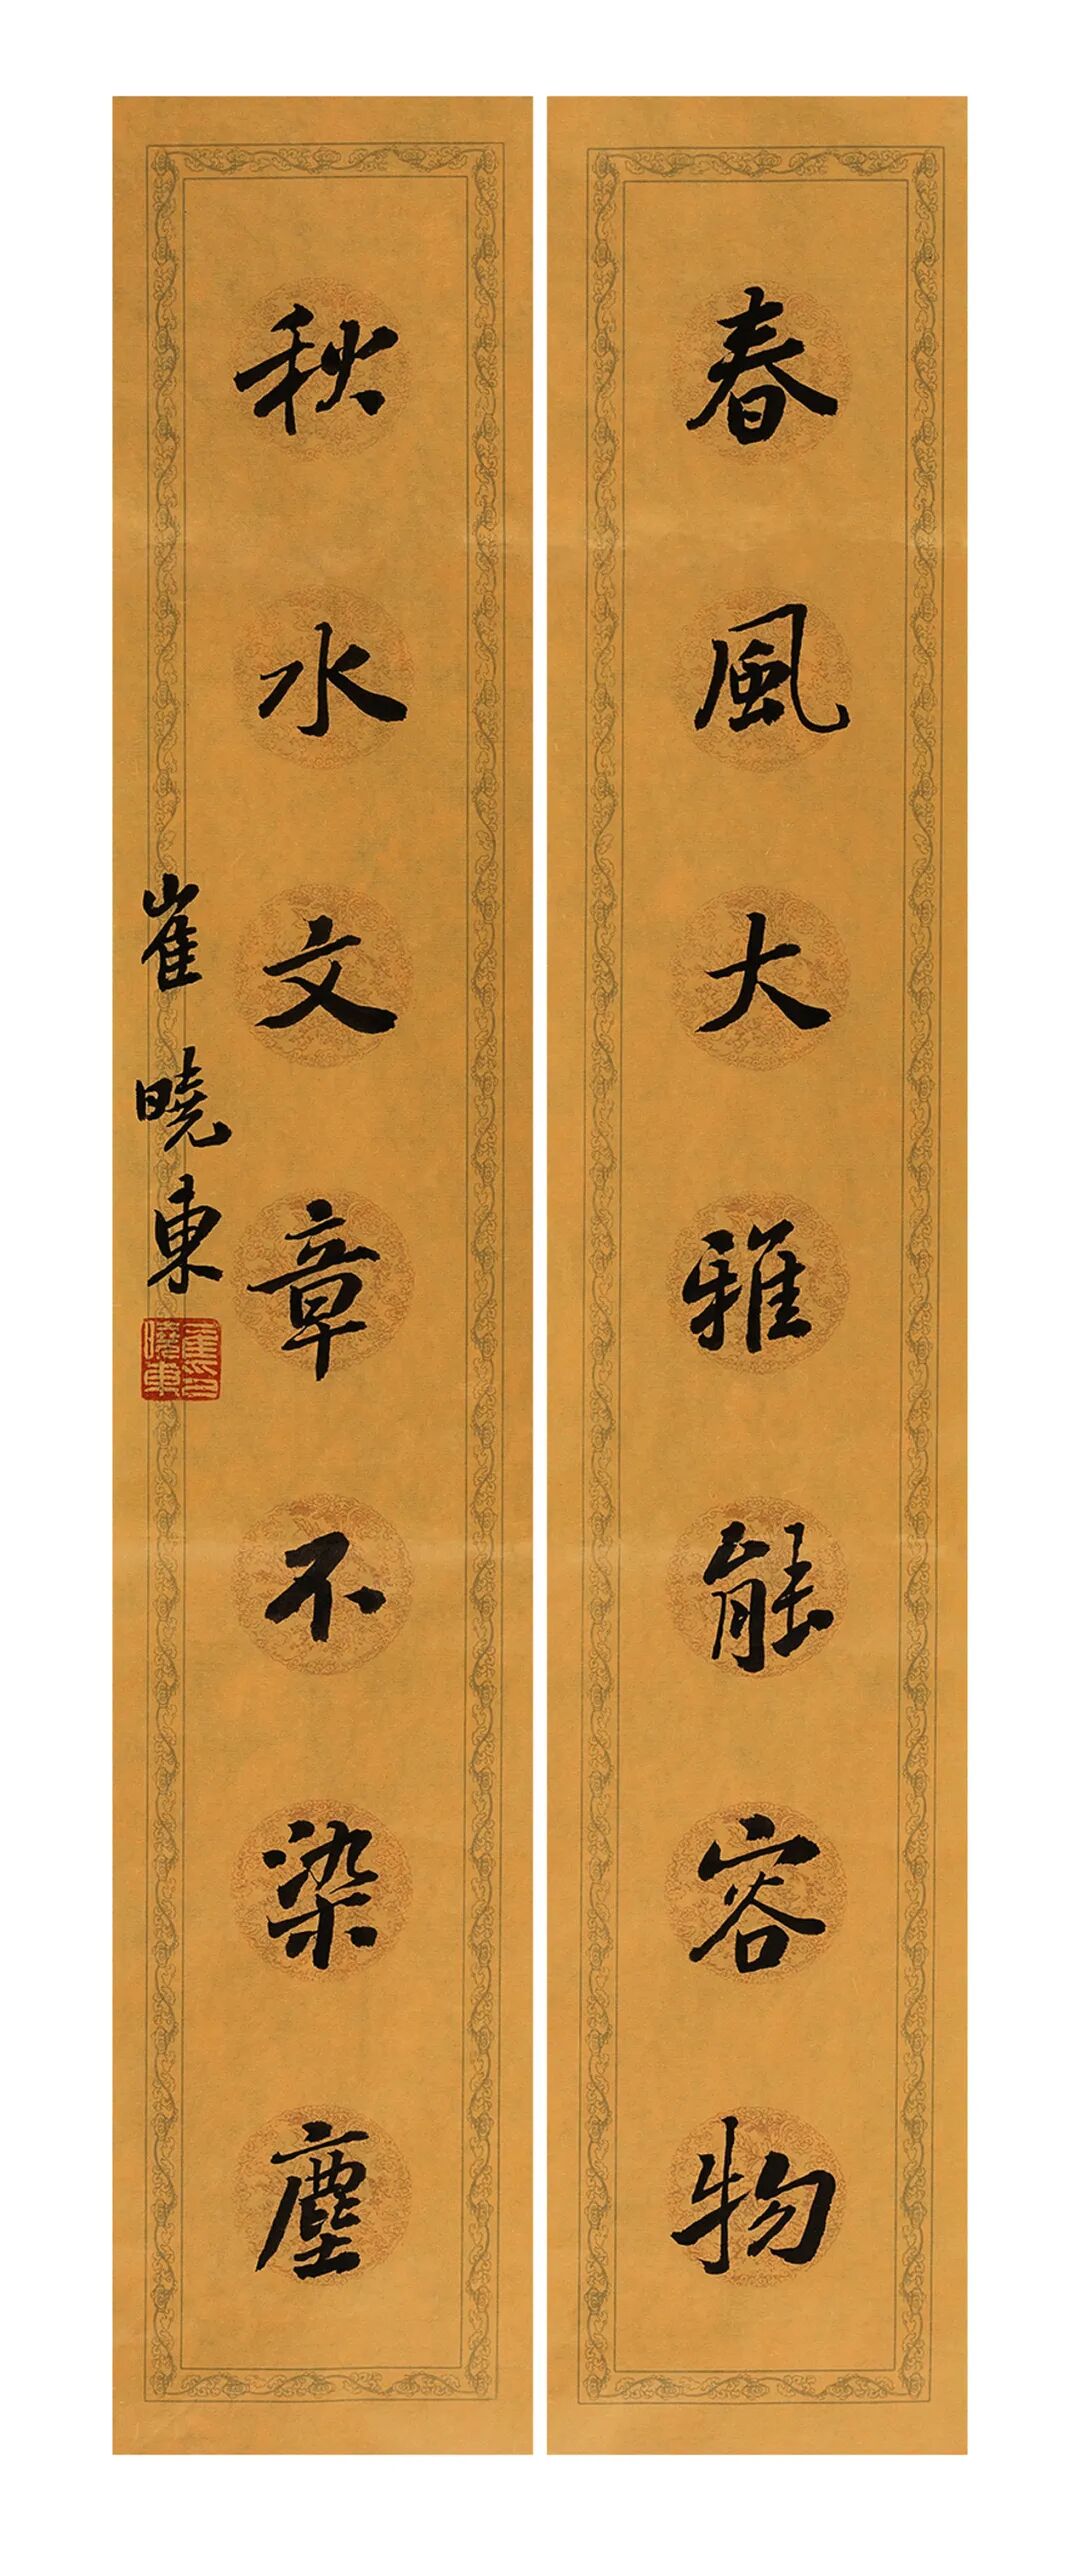 春風大雅能容物
秋水文章不染塵
崔曉東
崔曉東印